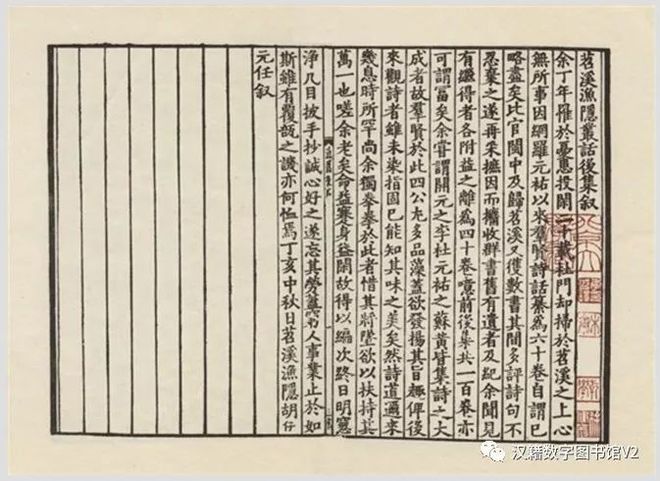 苕溪漁隱叢話後集叙
余丁年罹於憂患投閑二十載杜門却掃於苕溪之上心
無所事因網羅元祐以來羣賢詩話纂爲六十卷自謂已
略盡矣比官閩中及歸苕溪又獲數書其間多評詩句不
忍棄之遂再采摭因而攟收群書舊有遺者及紀余聞見
有繼得者各附益之離爲四十卷噫前後集共一百卷亦
可謂富矣余嘗謂開元之李杜元祐之蘇黃皆集詩之大
成者故羣賢於此四公尤多品藻蓋欲發揚其旨趣俾後
來觀詩者雖未染指固已能知其味之美矣然詩道邇來
幾息時所罕尚余獨拳拳於此者惜其將墜欲以扶持其
萬一也嗟余老矣命益蹇身益閑故得以編次終日明窻
浄几目披手抄誠心好之遂忘其勞蓋窮人事業止於如
斯雖有覆瓿之譏亦何恤焉丁亥中秋日苕溪漁隱胡仔
元任叙
汉籍数字图书馆V2